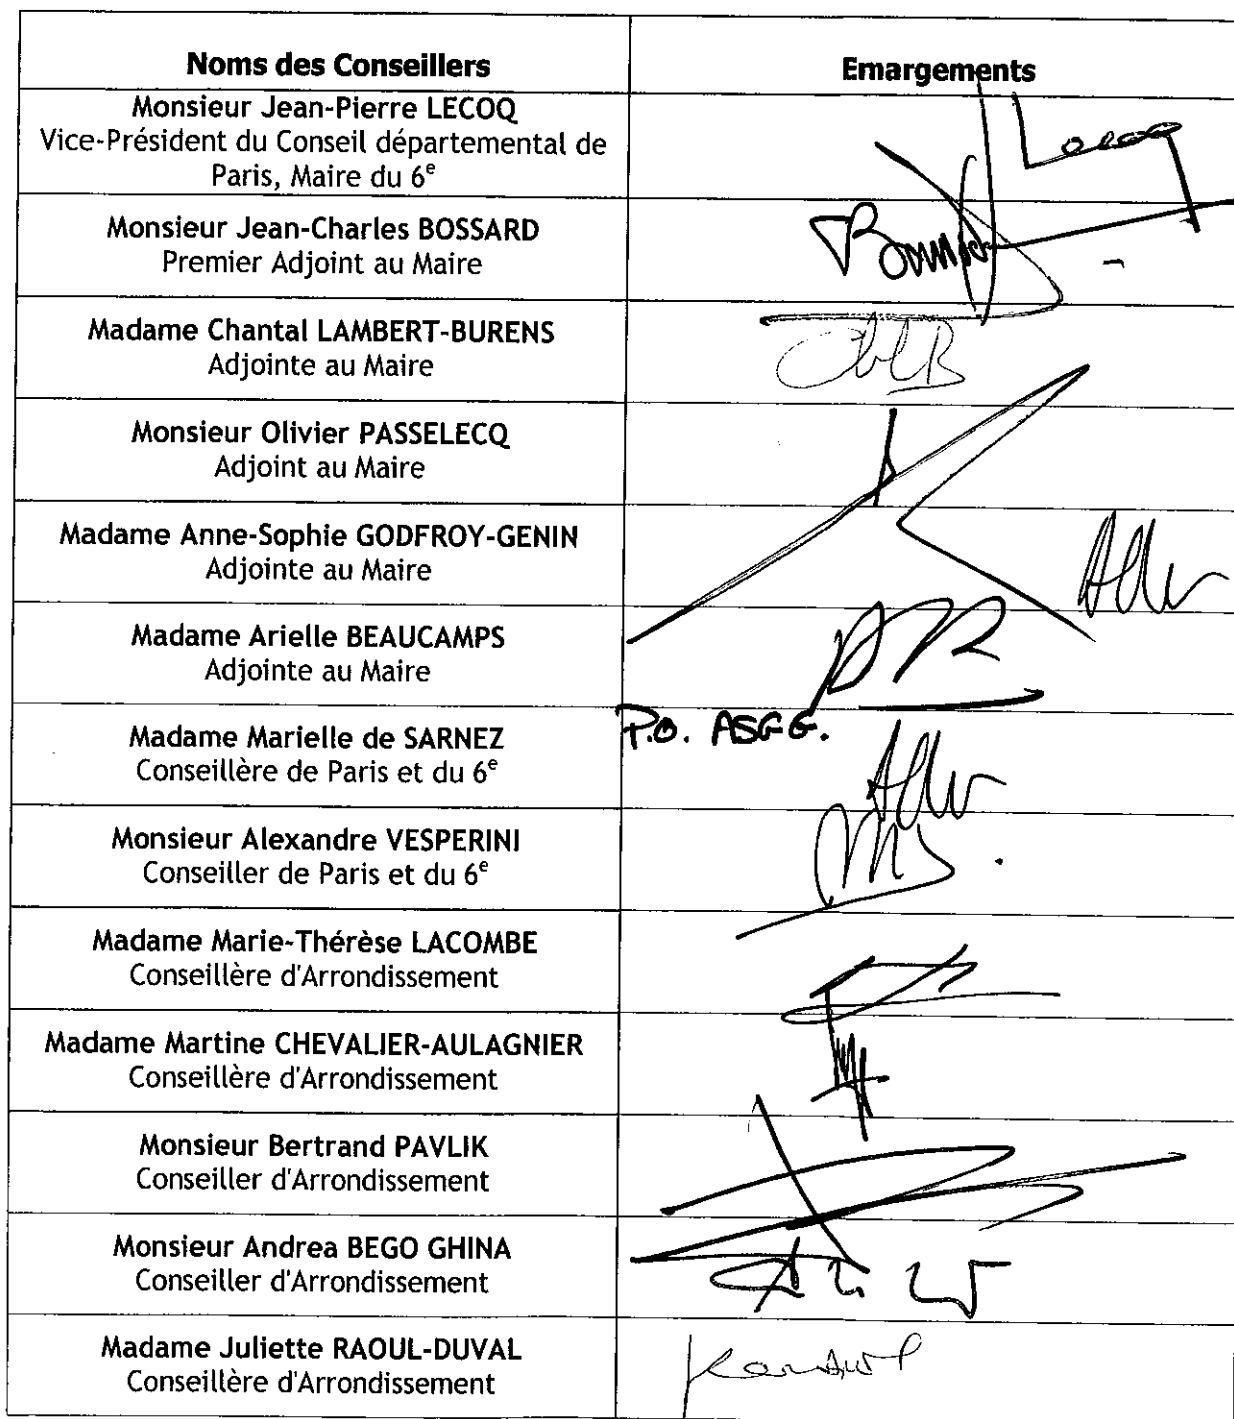 Noms des Conseillers
Emargements
Monsieur Jean-Pierre LECOQ
Vice-Président du Conseil départemental de
Paris, Maire du 6e
Lecoq
Monsieur Jean-Charles BOSSARD
Premier Adjoint au Maire
Madame Chantal LAMBERT-BURENS
Adjointe au Maire
Monsieur Olivier PASSELECQ
Adjoint au Maire
Madame Anne-Sophie GODFROY-GENIN
Adjointe au Maire
Madame Arielle BEAUCAMPS
Adjointe au Maire
Madame Marielle de SARNEZ
Conseillère de Paris et du 6e
P.O. ASGG.
Monsieur Alexandre VESPERINI
Conseiller de Paris et du 6e
Madame Marie-Thérèse LACOMBE
Conseillère d'Arrondissement
Madame Martine CHEVALIER-AULAGNIER
Conseillère d'Arrondissement
Monsieur Bertrand PAVLIK
Conseiller d'Arrondissement
Monsieur Andrea BEGO GHINA
Conseiller d'Arrondissement
Madame Juliette RAOUL-DUVAL
Conseillère d'Arrondissement